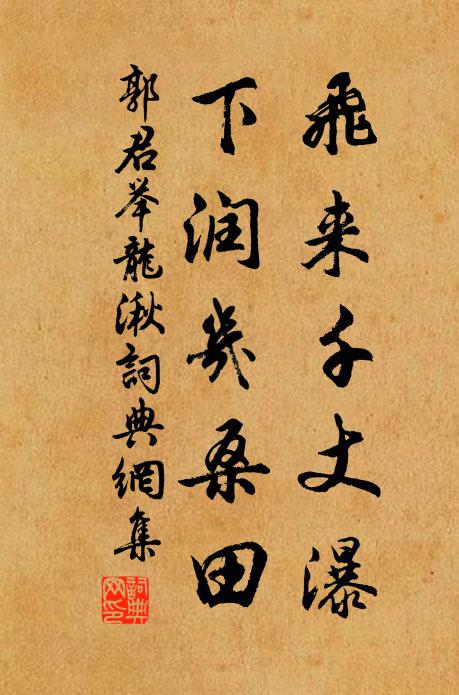 飛来千丈瀑
下润幾桑田
郭君举龍湫詞典網集
詞典
网印